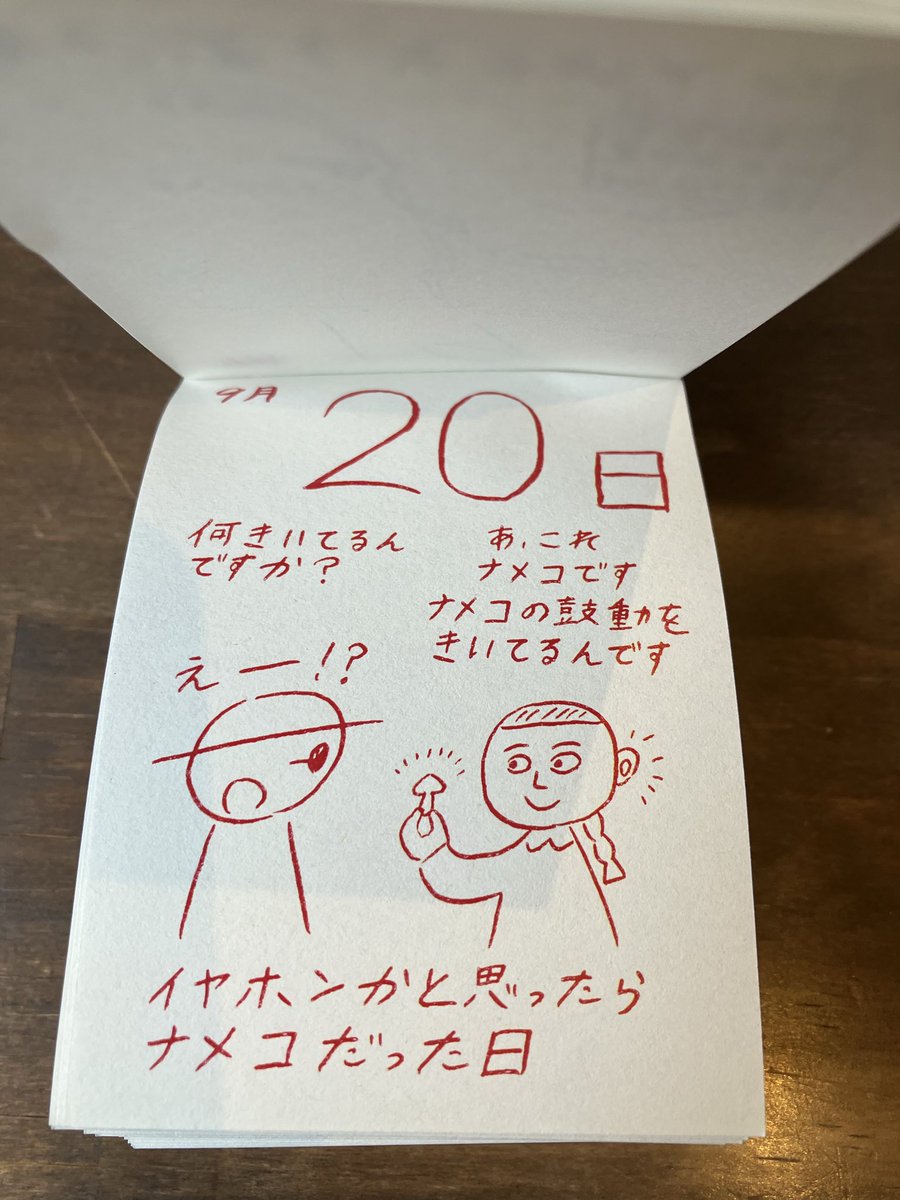 9月
20
日
何きいてるん
ですか？
あ、これ
ナメコです
ナメコの鼓動を
きいてるんです
えー!?
イヤホンかと思ったら
ナメコだった日